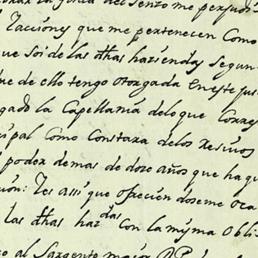 del Sento me perju
Tacciones que me pertenecen Como
que Soi de las dhas haziendas Segun
que de ello tengo otorgada en este jus
gado la Capellania de lo que
ipal como Constara de los Resivos
poder demas de doze años que ha qu
ion: Y es assi que ofreciendoseme oca
las dhas hazdas Con la misma Obli
al Sargento mayor